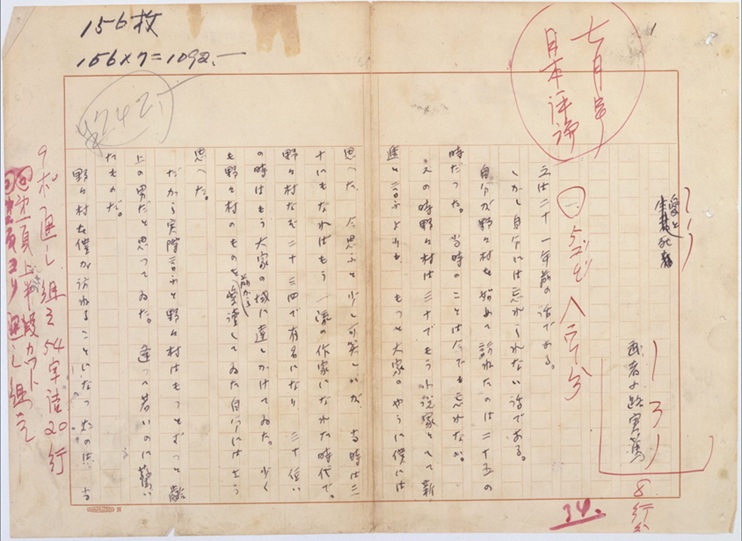 156枚
156×7=1092.—
七月号
日本評論
1
愛と死
武者小路実篤
8行
34.
之は二十一年前の話である。
しかし自分には忘れられない話である。
自分が野々村を始めて訪れたのは二十五の
時だった。当時のことは今でも忘れない。
その時野々村は三十でもう小説家として新
進と云ふよりも もっと大家のやうに僕には
思った。今思ふと少し可笑しいが、当時は二
十にもなればもう一流の作家になれた時代で、
野々村なぞ二十三四で有名になり、三十位い
の時はもう大家の域に達しかけてゐた。少く
も野々村のものを前から愛讀してゐた自分にはさう
思った。
だから実際云ふと野々村はもっとずっと齢
上の男だと思ってゐた。逢って若いのに驚い
たものだ。
野々村を僕が訪ねることになったのは、当
9ポ通し組之54字詰20行
頁上半段カット
通し組之